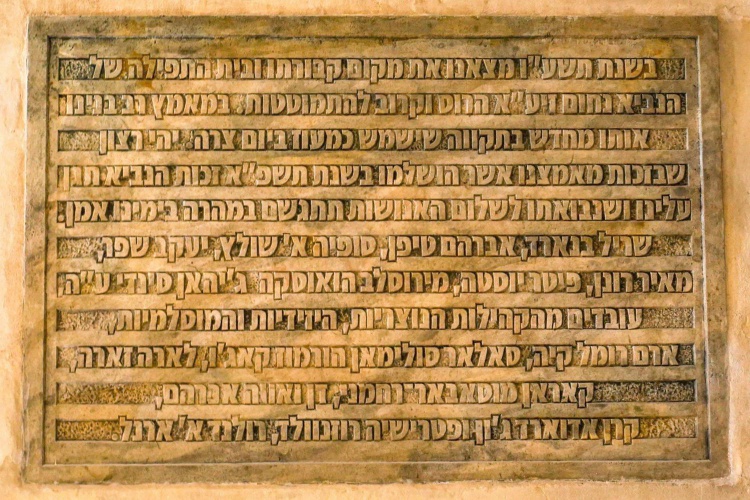 בשנת תשע"ו מצאנו את מקום קבורתו ובית התפילה של
הנביא נחום זיע"א הרוס וקרוב להתמוטטות. במאמץ רב בנינו
אותו מחדש בתקווה שישמש כמעוז ביום צרה. יהי רצון
שבזכות מאמצנו אשר הושלמו בשנת תשפ"א זכות הנביא תגן
עלינו ושנבואתו לשלום האנושות תתגשם במהרה בימינו אמן.
שריל בנארד, אברהם טיפן, סופיה א' שולץ, יעקב שפר,
מאיר רונן, פיטר יוסטה, מירוסלב הואוסקה ג'יהאן סינדי ע"ה,
עובדים מהקהילות הנוצריות, היזידיות והמוסלמיות,
אדם רומל קיה, סאלאר סולימאן הורמוז קאג'ו, לארה זארה,
קאראן מוטאבארי נחמני, דן ואווה אברהם,
קרן אדוארד ג'ין, ופטרישיה רוזנוולד, רולנד א' ארנל.